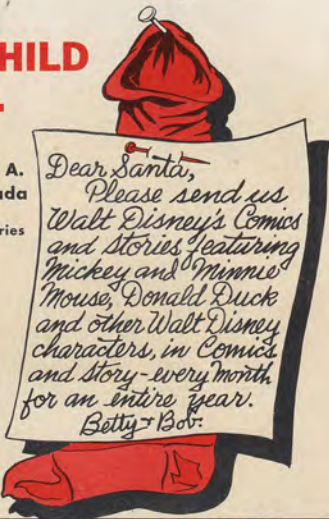 HILD
A.
ada
ries
Dear Santa,
Please send us
Walt Disney's Comics
and stories featuring
Mickey and Minnie
Mouse, Donald Duck
and other Walt Disney
characters, in Comics
and Story-every month
for an entire year.
Betty & Bob.